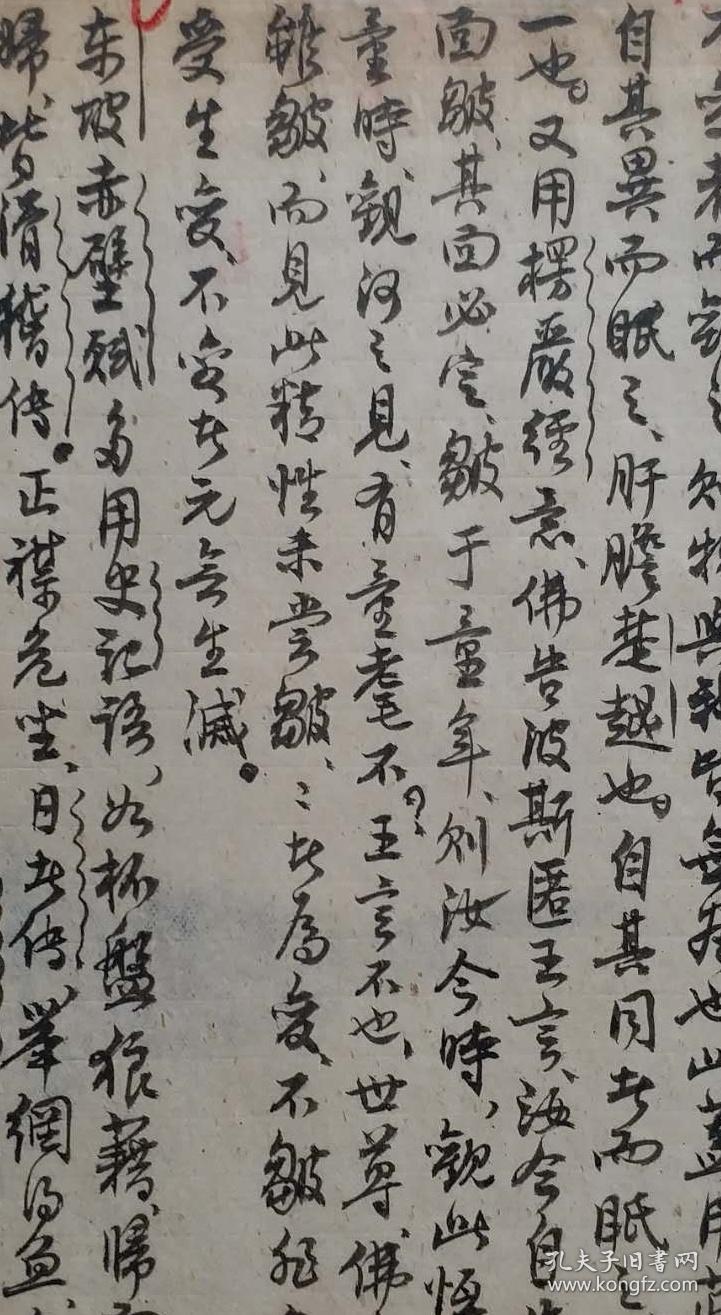 而觀之、則物與我皆無盡也此蓋用莊
自其異而眂之、肝膽楚越也。自其同者而眂
一也。又用楞嚴經意、佛告波斯匿王言、汝今自傷
面皺、其面必定、皺于童年、則汝今時、觀此恒
童時、觀河之見、有童耄不？王言不也、世尊、佛
雖皺、而見此精性未嘗皺、〻者為變、不皺非
受生變、不變者元無生滅。
東坡赤壁賦多用史記語、如杯盤狼藉、歸而
歸、皆滑稽傳。正襟危坐、日者傳、舉網得魚、
孔夫子旧书网
www.kongfz.com